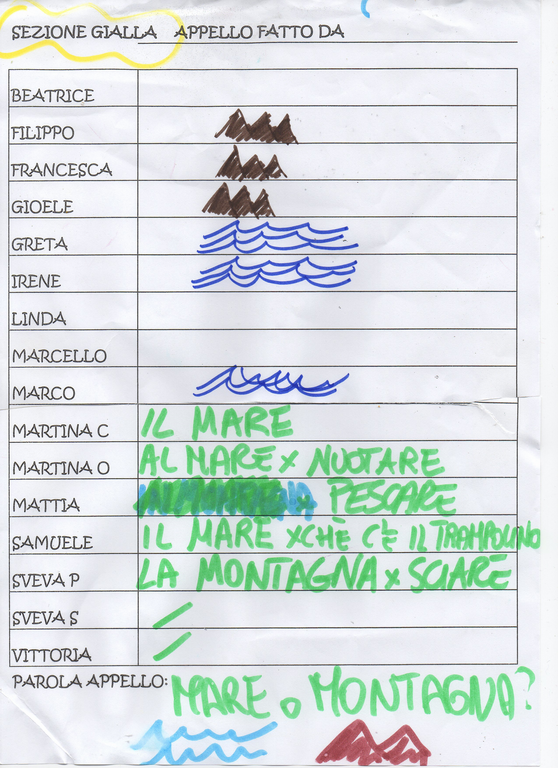 SEZIONE GIALLA APPELLO FATTO DA
BEATRICE
FILIPPO
FRANCESCA
GIOELE
GRETA
IRENE
LINDA
MARCELLO
MARCO
MARTINA C IL MARE
MARTINA O AL MARE X NUOTARE
MATTIA X PESCARE
SAMUELE IL MARE XCHÈ C'È IL TRAMPOLINO
SVEVA P LA MONTAGNA X SCIARE
SVEVA S
VITTORIA
PAROLA APPELLO: MARE O MONTAGNA?